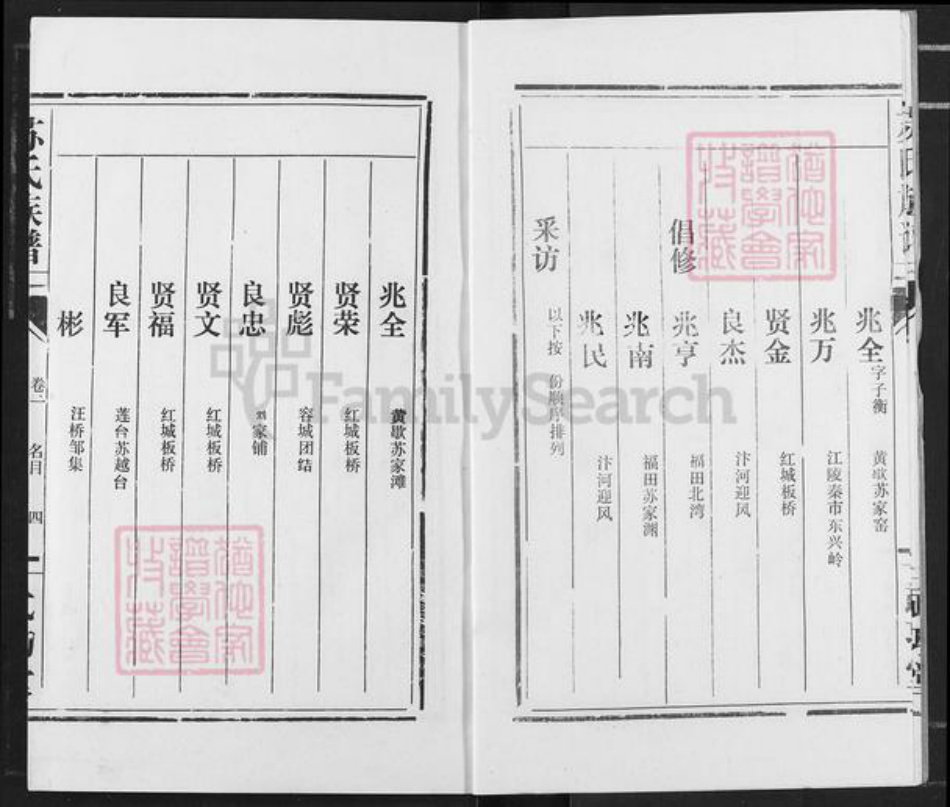 倡修
兆全 字子衡 黄歇苏家窑
兆万 江陵秦市东兴岭
贤金 红城板桥
良杰 汴河迎风
兆亨 福田北湾
兆南 福田苏家渊
兆民 汴河迎风
采访 以下按 份顺序排列
兆全 黄歇苏家滩
贤荣 红城板桥
贤彪 容城团结
良忠 家铺
贤文 红城板桥
贤福 红城板桥
良军 莲台苏越台
彬 汪桥邹集
苏氏族谱
卷一
名目
四
FamilySearch